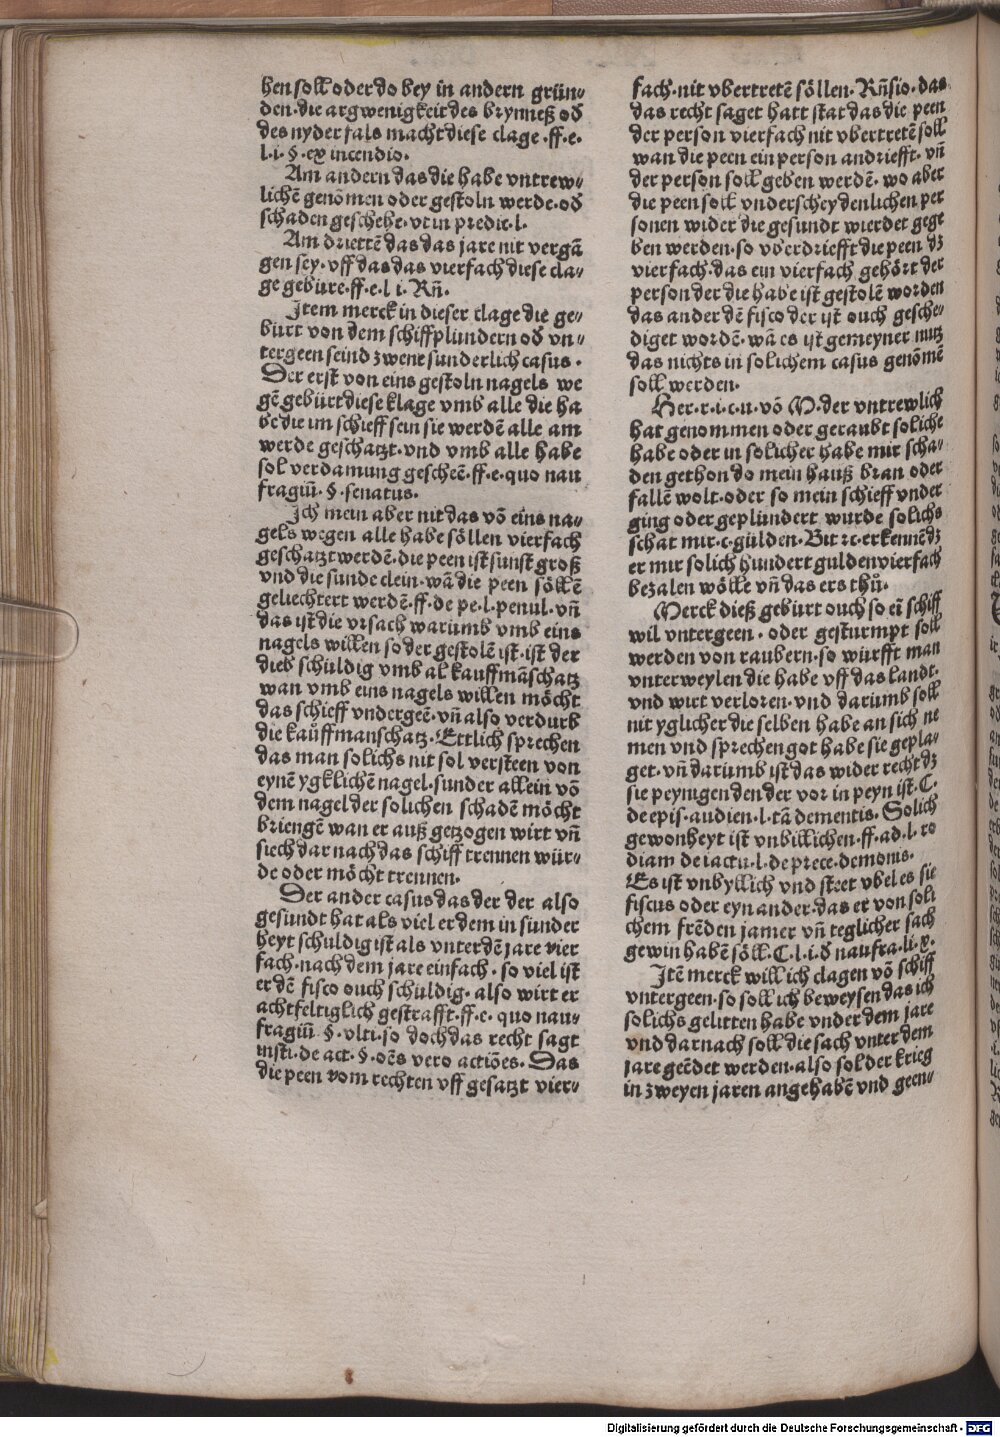 hen soll oder do bey in andern grün⸗
den·die argwenigkeit des brynneß od̄
des nyder fals macht diese clage·ff·e·
l·i·§·ex incendio·
Am andern das die habe vntrew⸗
lichē genōmen oder gestoln werde·od̄
schaden geschehe·vt in predic·l·
Am drittē das das jare nit vergā
gen sey·vff das das vierfach diese cla⸗
ge gebüre·ff·e·l i·Rñ·
Item merck in dieser clage die ge⸗
bürt von dem schiffplündern od̄ vn⸗
tergeen seind zwene sunderlich casus·
Der erst von eins gestoln nagels we
gē gebürt diese klage vmb alle die ha
be die im schieff sein sie werdē alle am
werde geschatzt·vnd vmb alle habe
sol verdamung gescheē·ff·e·quo nau
fragiū·§·senatus·
Ich mein aber nit das vō eins na⸗
gels wegen alle habe söllen vierfach
geschatzt werdē·die peen ist sunst groß
vnd die sunde clein·wā die peen söllē
geliechtert werdē·ff·de pe·l·penul·vñ
das ist die vrsach warumb vmb eins
nagels willen so der gestolē ist·ist der
dieb schuldig vmb al kauffmāschatz
wan vmb eins nagels willen möcht
das schieff vndergeē·vñ also verdurb
die kaůffmanschatz·Ettlich sprechen
das man solichs nit sol versteen von
eynē ygklichē nagel·sunder allein vō
dem nagel der solichen schadē möcht
briengē wan er auß getzogen wirt vñ
siech dar nach das schiff trennen wür⸗
de oder möcht trennen·
Der ander casus das der der also
gesündt hat als viel er dem in sunder
heyt schuldig ist als vnter dē jare vier
fach·nach dem jare einfach·so viel ist
er dē fisco ouch schuldig·also wirt er
achtfeltiglich gestrafft·ff·e·quo nau⸗
fragiū·§·vlti·so doch das recht sagt
insti·de act·§·oēs vero actiōes·Das
die peen vom rechten vff gesatzt vier⸗
fach·nit vbertretē söllen·Rñsio·das
das recht saget hatt stat das die peen
der person vierfach nit vbertretē soll
wan die peen ein person andriefft·vñ
der person soll geben werdē·wo aber
die peen soll vnderscheydenlichen per
sonen wider die gesundt wierdet gege
ben werden·so vberdriefft die peen dz
vierfach·das ein vierfach gehört der
person der die habe ist gestolē worden
das ander dē fisco der ist ouch gesche⸗
diget wordē·wā es ist gemeyner nutz
das nichts in solichem casus genōmē
soll werden·
Her·r·i·c·n·vō M·der vntrewlich
hat genommen oder geraubt soliche
habe oder in solicher habe mir scha⸗
den gethon do mein hauß bran oder
fallē wolt·oder so mein schieff vnder
ging oder geplündert wurde solichs
schat mir·c·gülden·Bit ꝛc·erkennē dz
er mir solich hundert gulden vierfach
bezalen wölle vñ das ers thů·
Merck dieß gebürt ouch so eī schiff
wil vntergeen·oder gesturmpt soll
werden von raubern·so würfft man
vnterweylen die habe vff das landt·
vnd wirt verloren·vnd darumb soll
nit yglicher die selben habe an sich ne
men vnd sprechen got habe sie gepla⸗
get·vñ darumb ist das wider recht dz
sie peynigen den der vor in peyn ist·C·
de epis·audien·l·tā dementis·Solich
gewonheyt ist vnbillichen·ff·ad·l·ro
diam de iactu·l·de prece·demonis·
Es ist vnbyllich vnd steet vbel es sie
fiscus oder eyn ander·das er von soli
chem frēden jamer vñ teglicher sach
gewin habē söll·C·l·i·d̄ naufra·li·x·
Itē merck will ich clagen vō schiff
vntergeen·so soll ich beweysen das ich
solichs gelitten habe vnder dem jare
vnd darnach soll die sach vnter dem
jare geēdet werden·also sol der krieg
in zweyen jaren angehabē vnd geen⸗
Digitalisierung gefördert durch die Deutsche Forschungsgemeinschaft - DFG